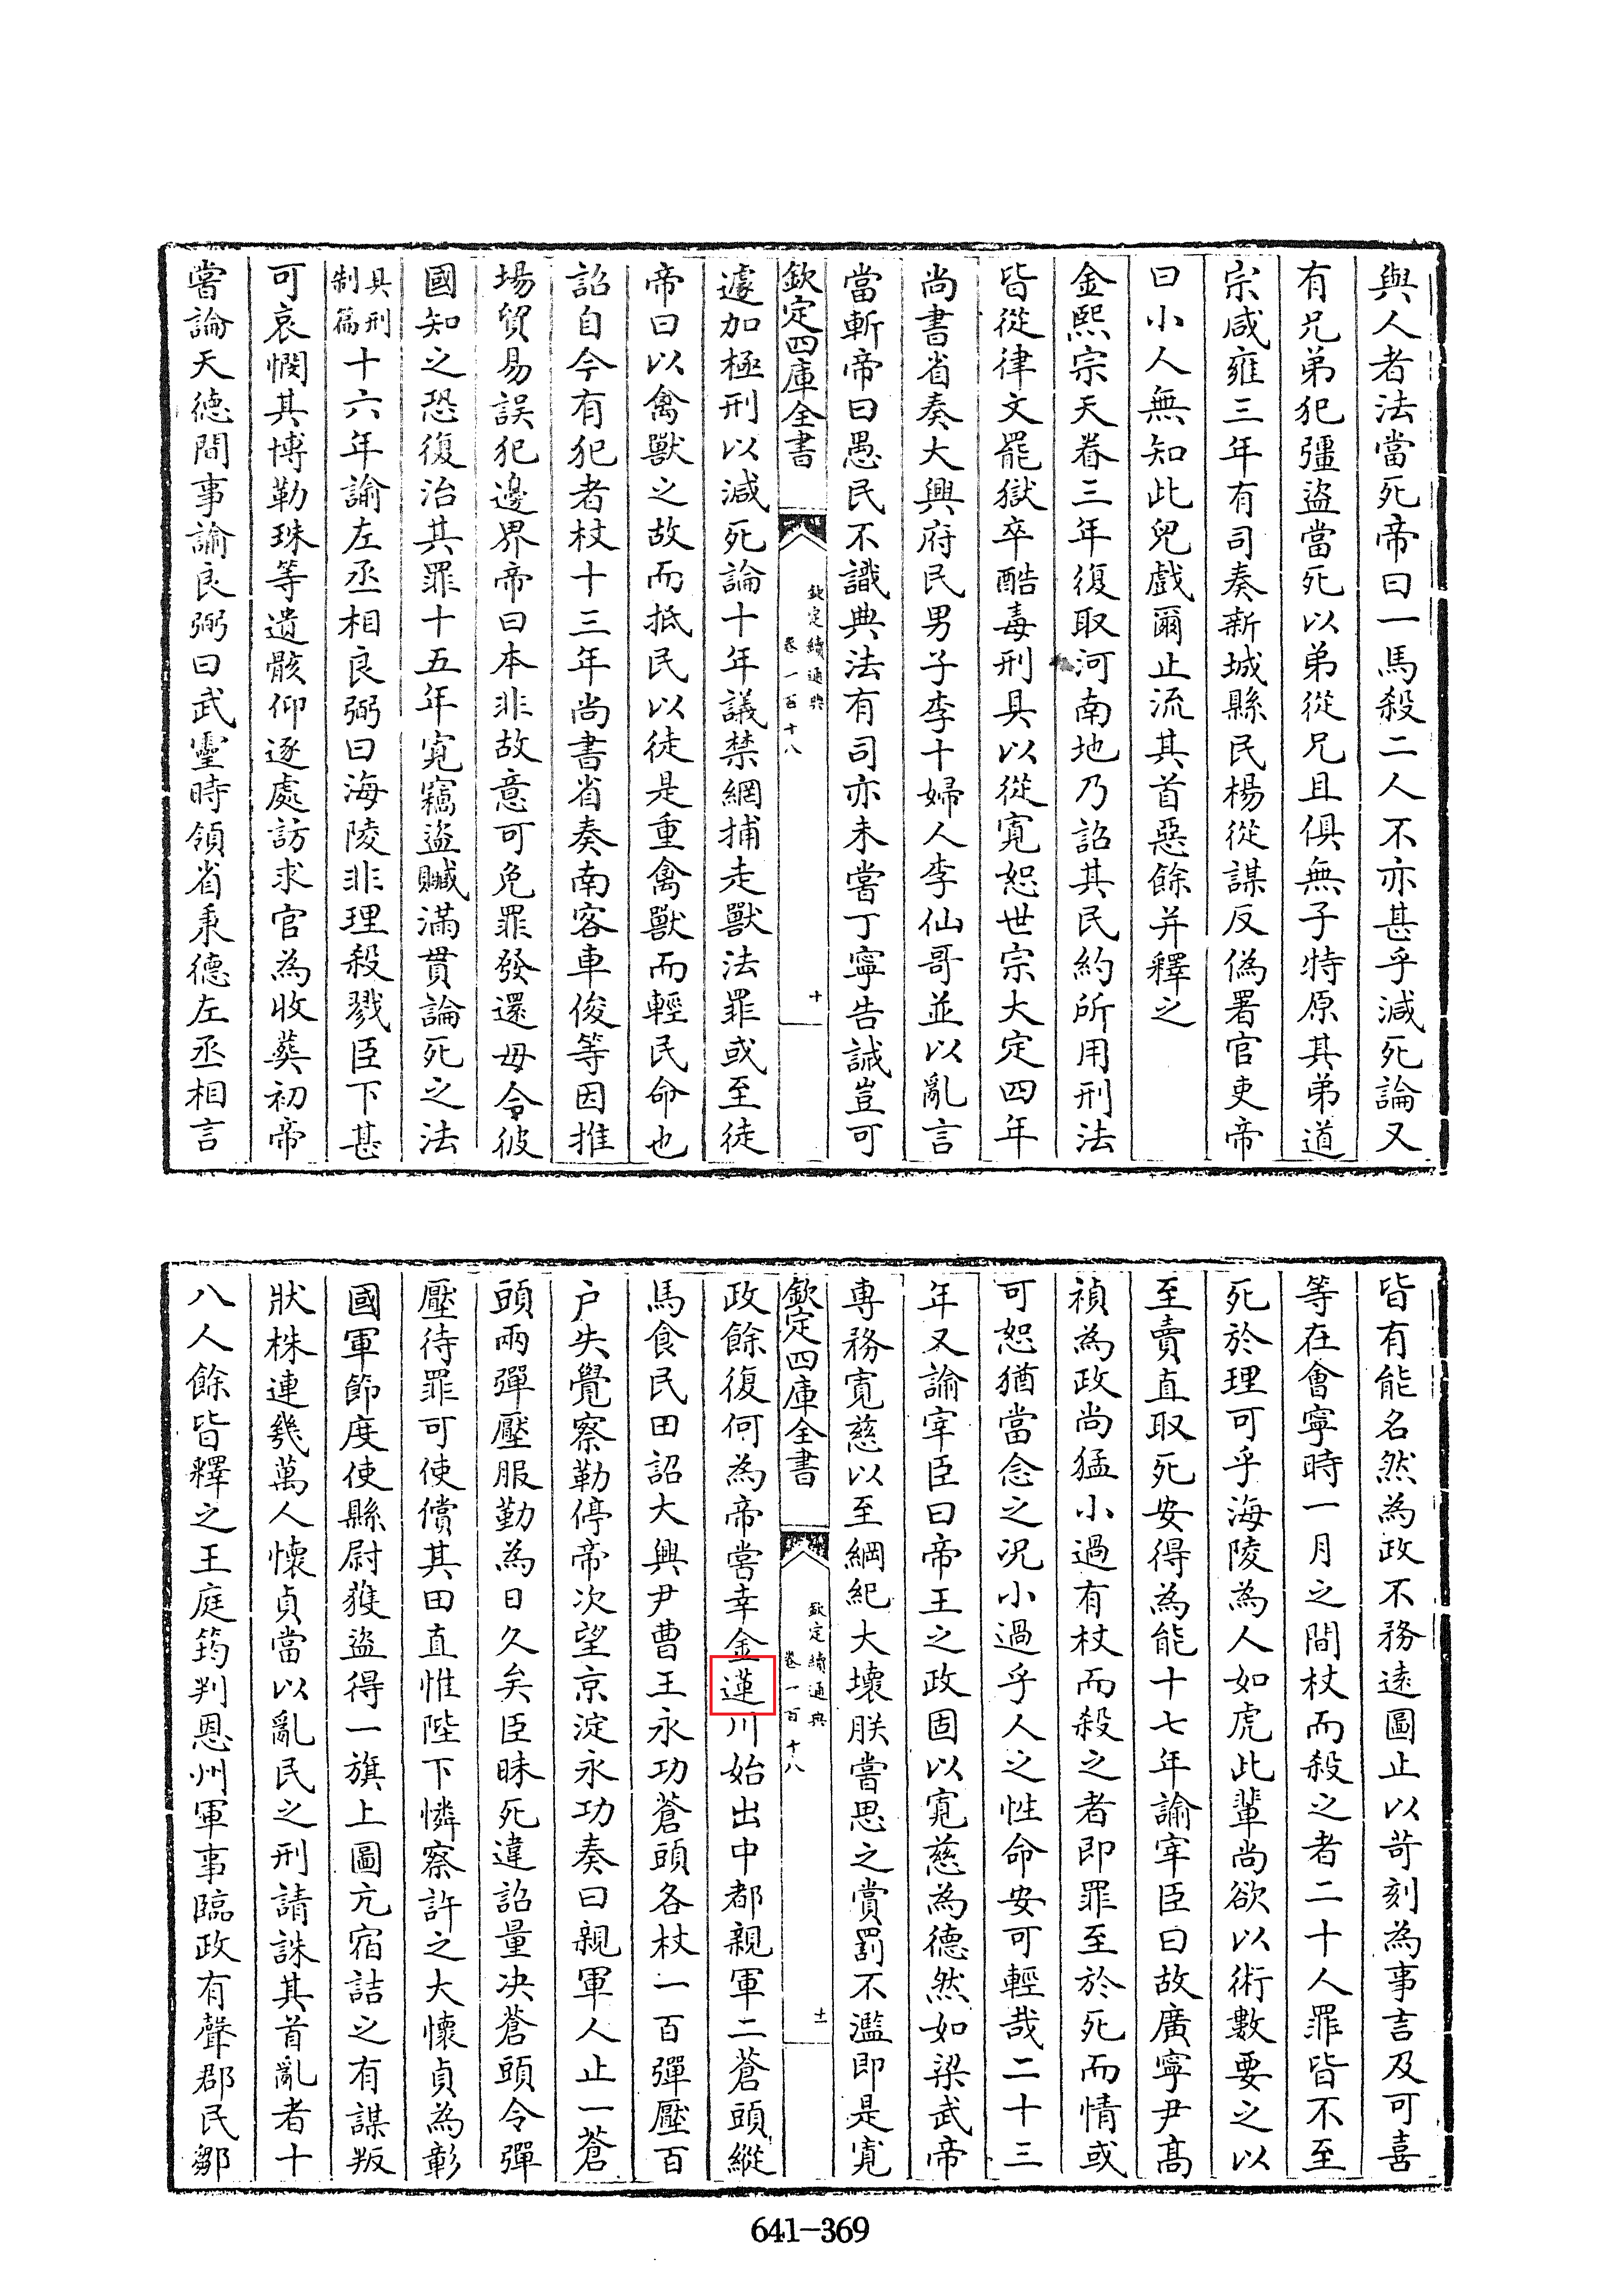 與人者法當死帝曰一馬殺二人不亦甚乎減死論又
有兄弟犯彊盜當死以弟從兄且俱無子特原其弟道
宗咸雍三年有司奏新城縣民楊從謀反偽署官吏帝
曰小人無知此兒戲爾止流其首惡餘并釋之
金熙宗天眷三年復取河南地乃詔其民約所用刑法
皆從律文罷獄卒酷毒刑具以從寬恕世宗大定四年
尚書省奏大興府民男子李十婦人李仙哥並以亂言
當斬帝曰愚民不識典法有司亦未嘗丁寧告誡豈可
欽定四庫全書
欽定續通典
卷一百十八
十
遽加極刑以減死論十年議禁網捕走獸法罪或至徒
帝曰以禽獸之故而抵民以徒是重禽獸而輕民命也
詔自今有犯者杖十三年尚書省奏南客車俊等因推
場貿易誤犯邊界帝曰本非故意可免罪發還毋令彼
國知之恐復治其罪十五年寬竊盜贓滿貫論死之法
具刑
制篇
十六年諭左丞相良弼曰海陵非理殺戮臣下甚
可哀憫其博勒珠等遺骸仰逐處訪求官為收葬初帝
嘗論天德間事諭良弼曰武靈時領省秉德左丞相言
皆有能名然為政不務遠圖止以苛刻為事言及可喜
等在會寧時一月之間杖而殺之者二十人罪皆不至
死於理可乎海陵為人如虎此輩尚欲以術數要之以
至賣直取死安得為能十七年諭宰臣曰故廣寧尹髙
禎為政尚猛小過有杖而殺之者即罪至於死而情或
可恕猶當念之况小過乎人之性命安可輕哉二十三
年又諭宰臣曰帝王之政固以寬慈為德然如梁武帝
專務寬慈以至綱紀大壞朕嘗思之賞罰不濫即是寬
欽定四庫全書
欽定續通典
卷一百十八
十一
政餘復何為帝嘗幸金蓮川始出中都親軍二蒼頭縱
馬食民田詔大興尹曹王永功蒼頭各杖一百彈壓百
户失覺察勒停帝次望京淀永功奏曰親軍人止一蒼
頭兩彈壓服勤為日久矣臣昧死違詔量决蒼頭令彈
壓待罪可使償其田直惟陛下憐察許之大懷貞為彰
國軍節度使縣尉獲盜得一旗上圖亢宿詰之有謀叛
狀株連幾萬人懷貞當以亂民之刑請誅其首亂者十
八人餘皆釋之王庭筠判恩州軍事臨政有聲郡民鄒
641-369